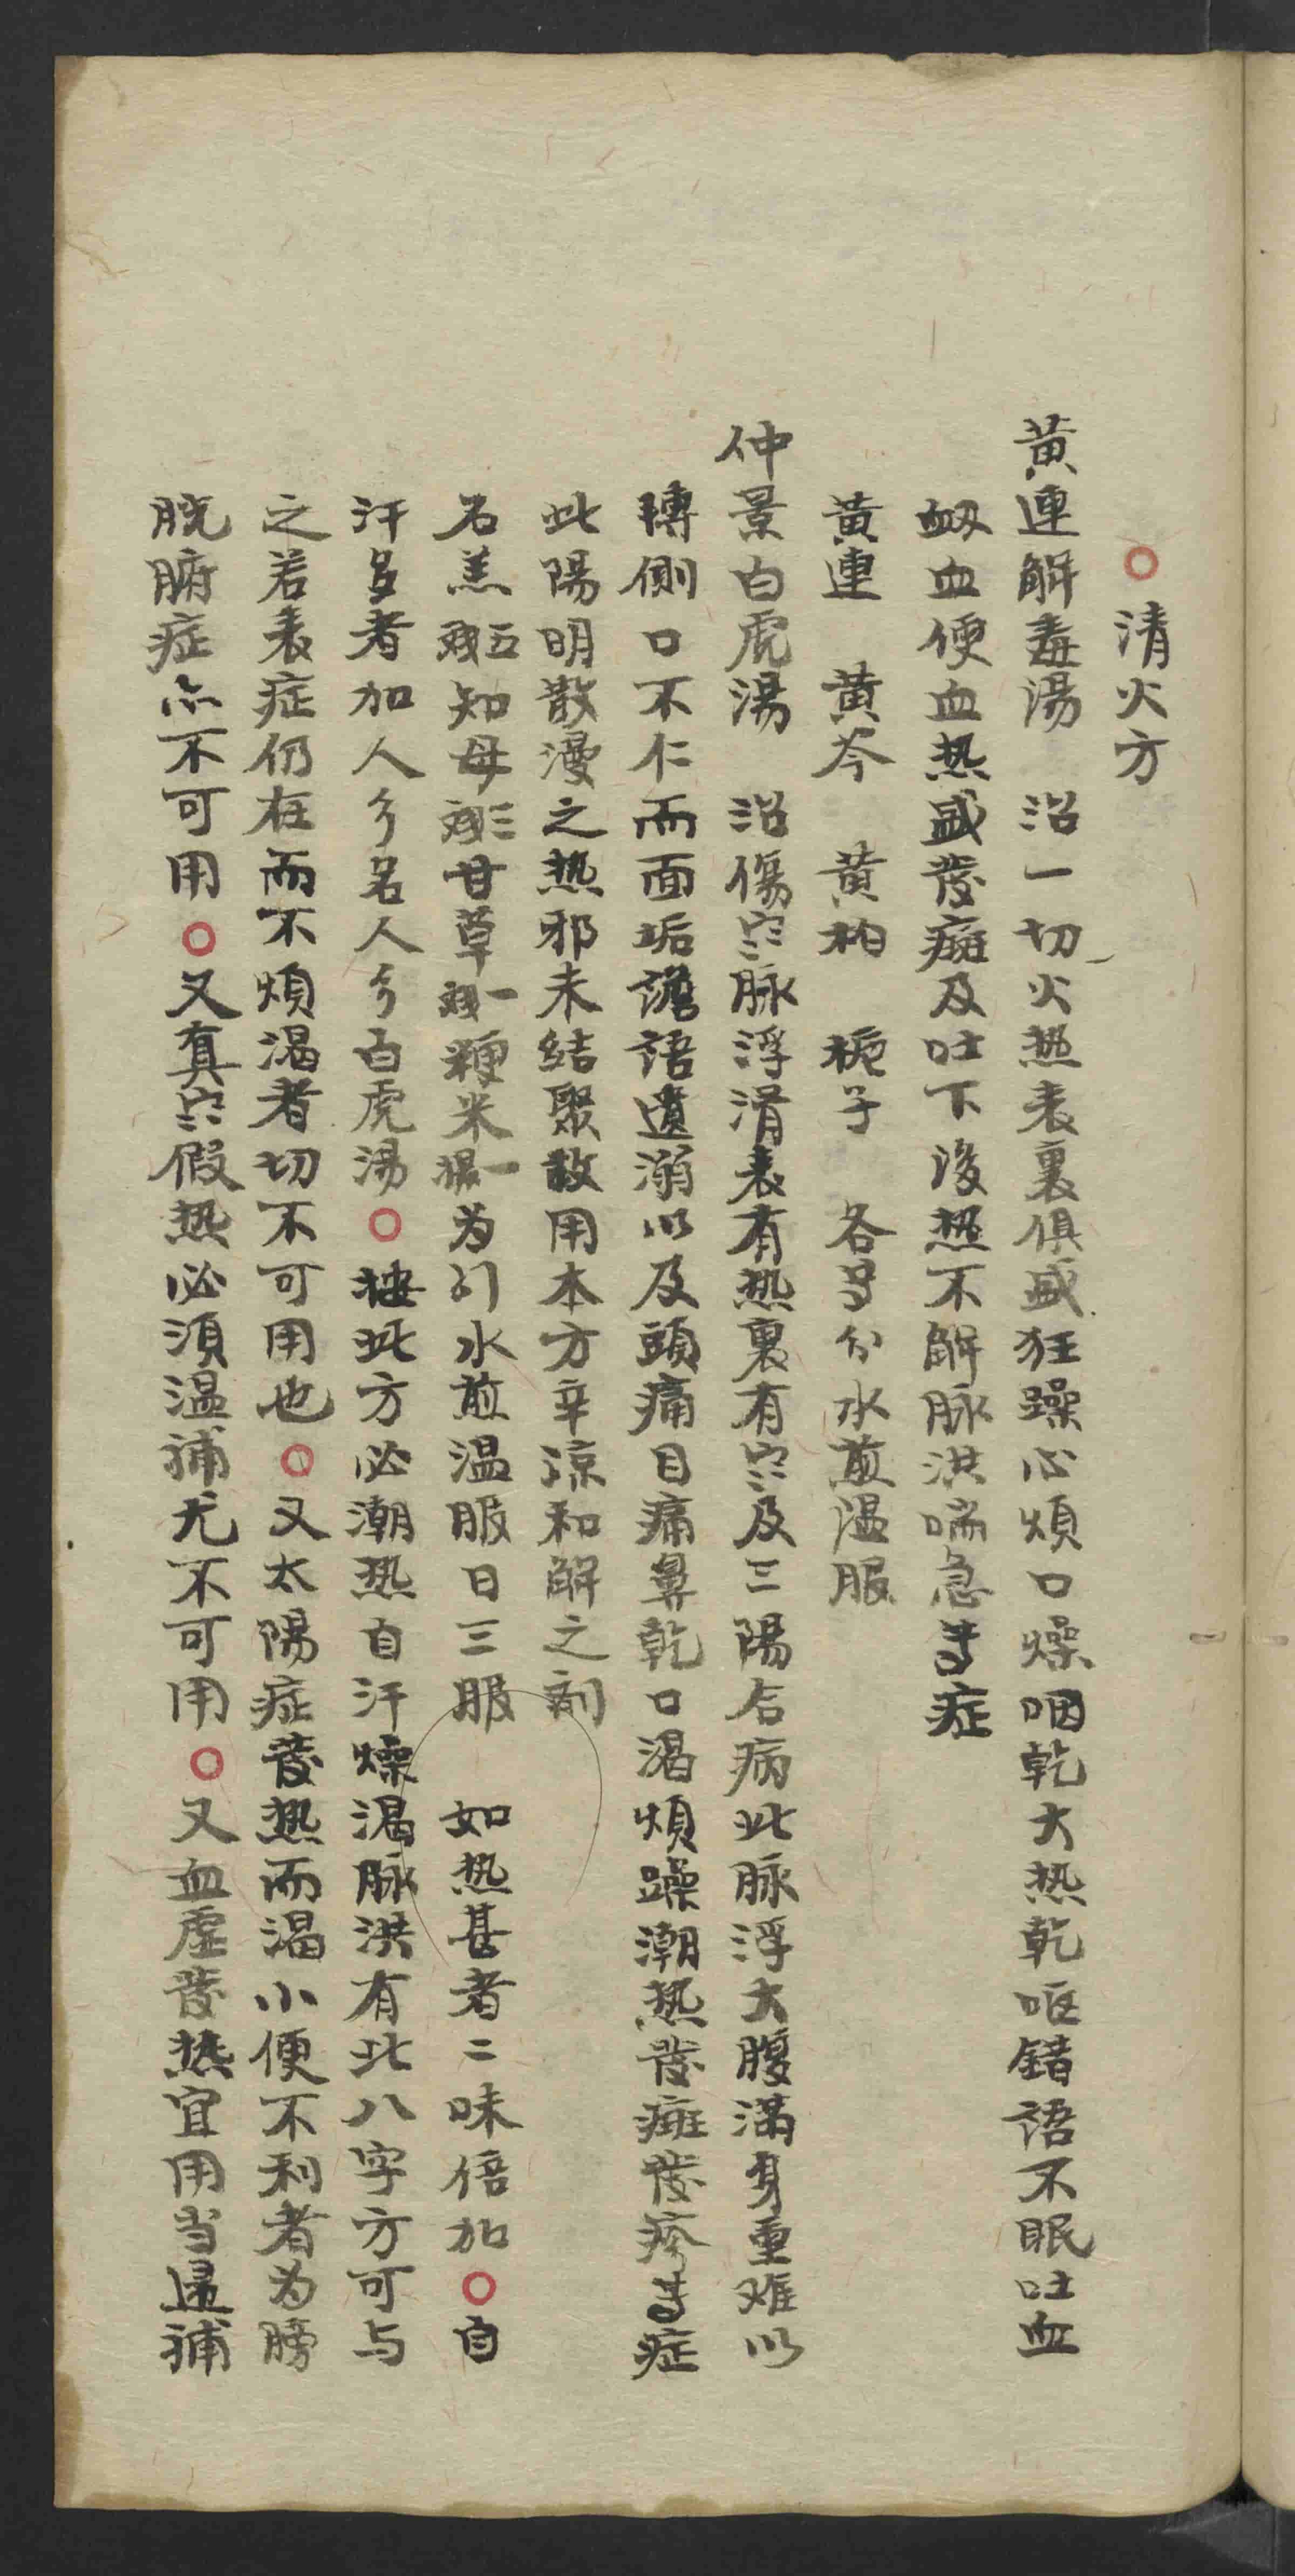 ○清火方
黄連解毒湯　治一切火热表裏俱盛狂躁心煩口燥咽乾大热乾呕錯語不眠吐血
衂血便血热盛發癍及吐下後热不解脉洪喘急等症
黄連　黄芩　黄柏　栀子　各等分水煎温服
仲景白虎湯　治傷寒脉浮滑表有热裏有寒及三陽合病此脉浮大腹滿身重难以
轉側口不仁而面垢譫語遺溺以及頭痛目痛鼻乾口渴煩躁潮热發癍發疹等症
此陽明散漫之热邪未結聚故用本方辛涼和解之剂
石羔五錢知母三錢甘草一錢粳米一撮为引水煎温服日三服　如热甚者二味倍加○自
汗多者加人參名人參白虎湯○按此方必潮热自汗燥渴脉洪有此八字方可与
之若表症仍在而不煩渴者切不可用也○又太陽症發热而渴小便不利者为膀
胱腑症亦不可用○又真寒假热必須温補尤不可用○又血虚發热宜用当歸補